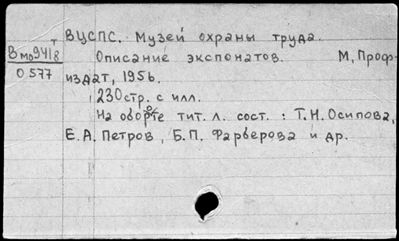 ВЦСПС. Музей охраны труда.
т
Вмо941/8
Описание экспонатов. М, Проф-
0577
издат, 1956.
230стр. с илл.
На обороте тит. л. сост. : Т.Н. Осипова,
Е.А. Петров, Б.П. Фарверова и др.